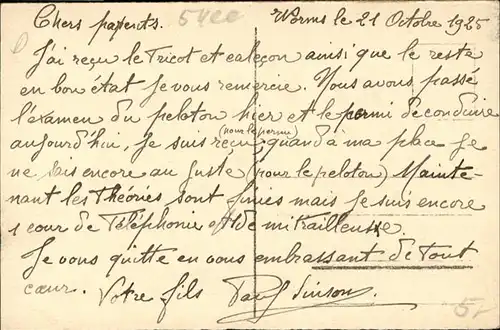 Worms le 21 Octobre 1925
Chers parents.
J'ai reçu le Tricot et caleçon ainsi que le reste
en bon état je vous remercie. Nous avons passé
l'examen du peloton hier et le permi de conduire
aujourd'hui, je suis reçu (pour le permi) quand à ma place je
ne sais encore au juste (pour le peloton) Mainte-
nant les Théories sont finies mais je suis encore
1 cour de Téléphonie et de mitrailleuse.
Je vous quitte en vous embrassant de tout
cœur. Votre fils Paul